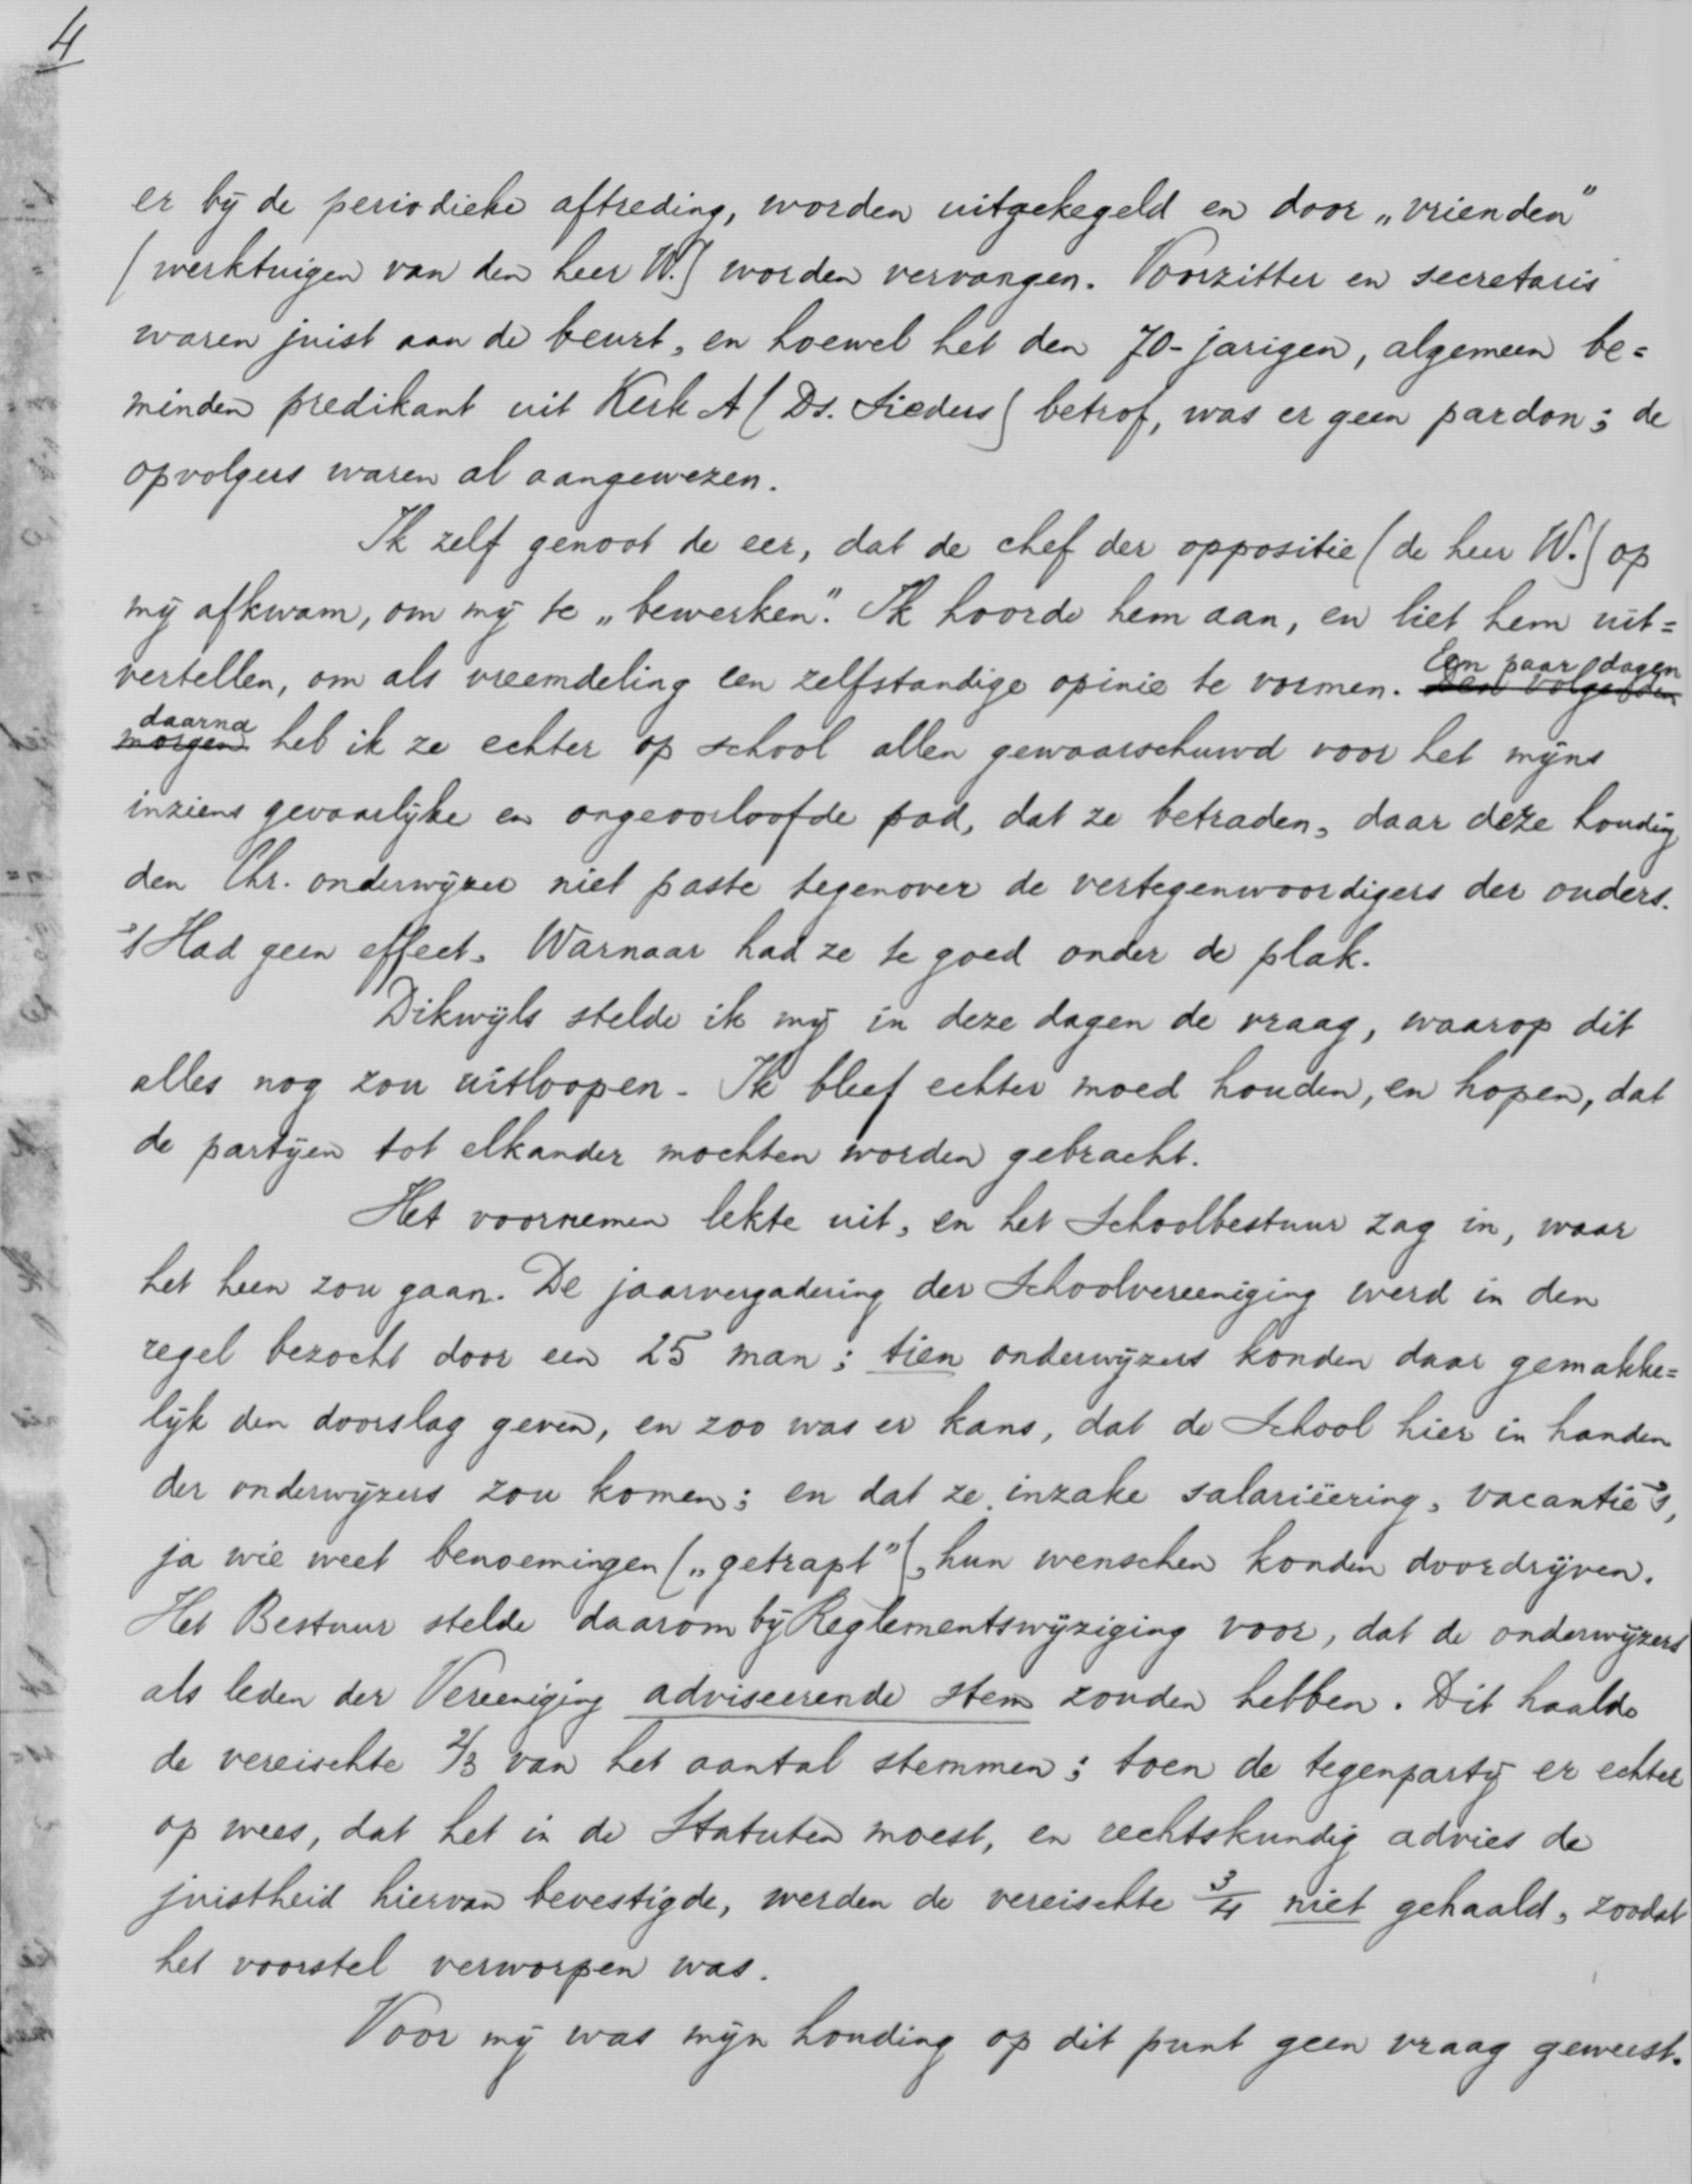 4
er bij de periodieke aftreding, worden uitgekegeld en door „vrienden"
(werktuigen van den heer W.) worden vervangen. Voorzitter en secretaris
waren juist aan de beurt, en hoewel het den 70-jarigen, algemeen be=
minden predikant uit Kerk A (Ds. Sieders) betrof, was er geen pardon; de
opvolgers waren al aangewezen.
Ik zelf genoot de eer, dat de chef der oppositie (de heer W.) op
mij afkwam, om mij te „bewerken". Ik hoorde hem aan, en liet hem uit=
vertellen, om als vreemdeling een zelfstandige opinie te vormen. Een paar dagen
daarna heb ik ze echter op school allen gewaarschuwd voor het mijns
inziens gevaarlijke en ongeoorloofde pad, dat ze betraden, daar deze houding
den Chr. onderwijzer niet paste tegenover de vertegenwoordigers der ouders.
't Had geen effect. Warnaar had ze te goed onder de plak.
Dikwijls stelde ik mij in deze dagen de vraag, waarop dit
alles nog zou uitloopen. Ik bleef echter moed houden, en hopen, dat
de partijen tot elkander mochten worden gebracht.
Het voornemen lekte uit, en het Schoolbestuur zag in, waar
het heen zou gaan. De jaarvergadering der Schoolvereeniging werd in den
regel bezocht door een 25 man; tien onderwijzers konden daar gemakke=
lijk den doorslag geven, en zoo was er kans, dat de School hier in handen
der onderwijzers zou komen; en dat ze inzake salariëering, vacantie's,
ja wie weet benoemingen („getrapt"), hun wenschen konden doordrijven.
Het Bestuur stelde daarom bij Reglementswijziging voor, dat de onderwijzers
als leden der Vereeniging adviseerende stem zouden hebben. Dit haalde
de vereischte 2/3 van het aantal stemmen; toen de tegenpartij er echter
op wees, dat het in de Statuten moest, en rechtskundig advies de
juistheid hiervan bevestigde, werden de vereischte 3/4 niet gehaald, zoodat
het voorstel verworpen was.
Voor mij was mijn houding op dit punt geen vraag geweest.